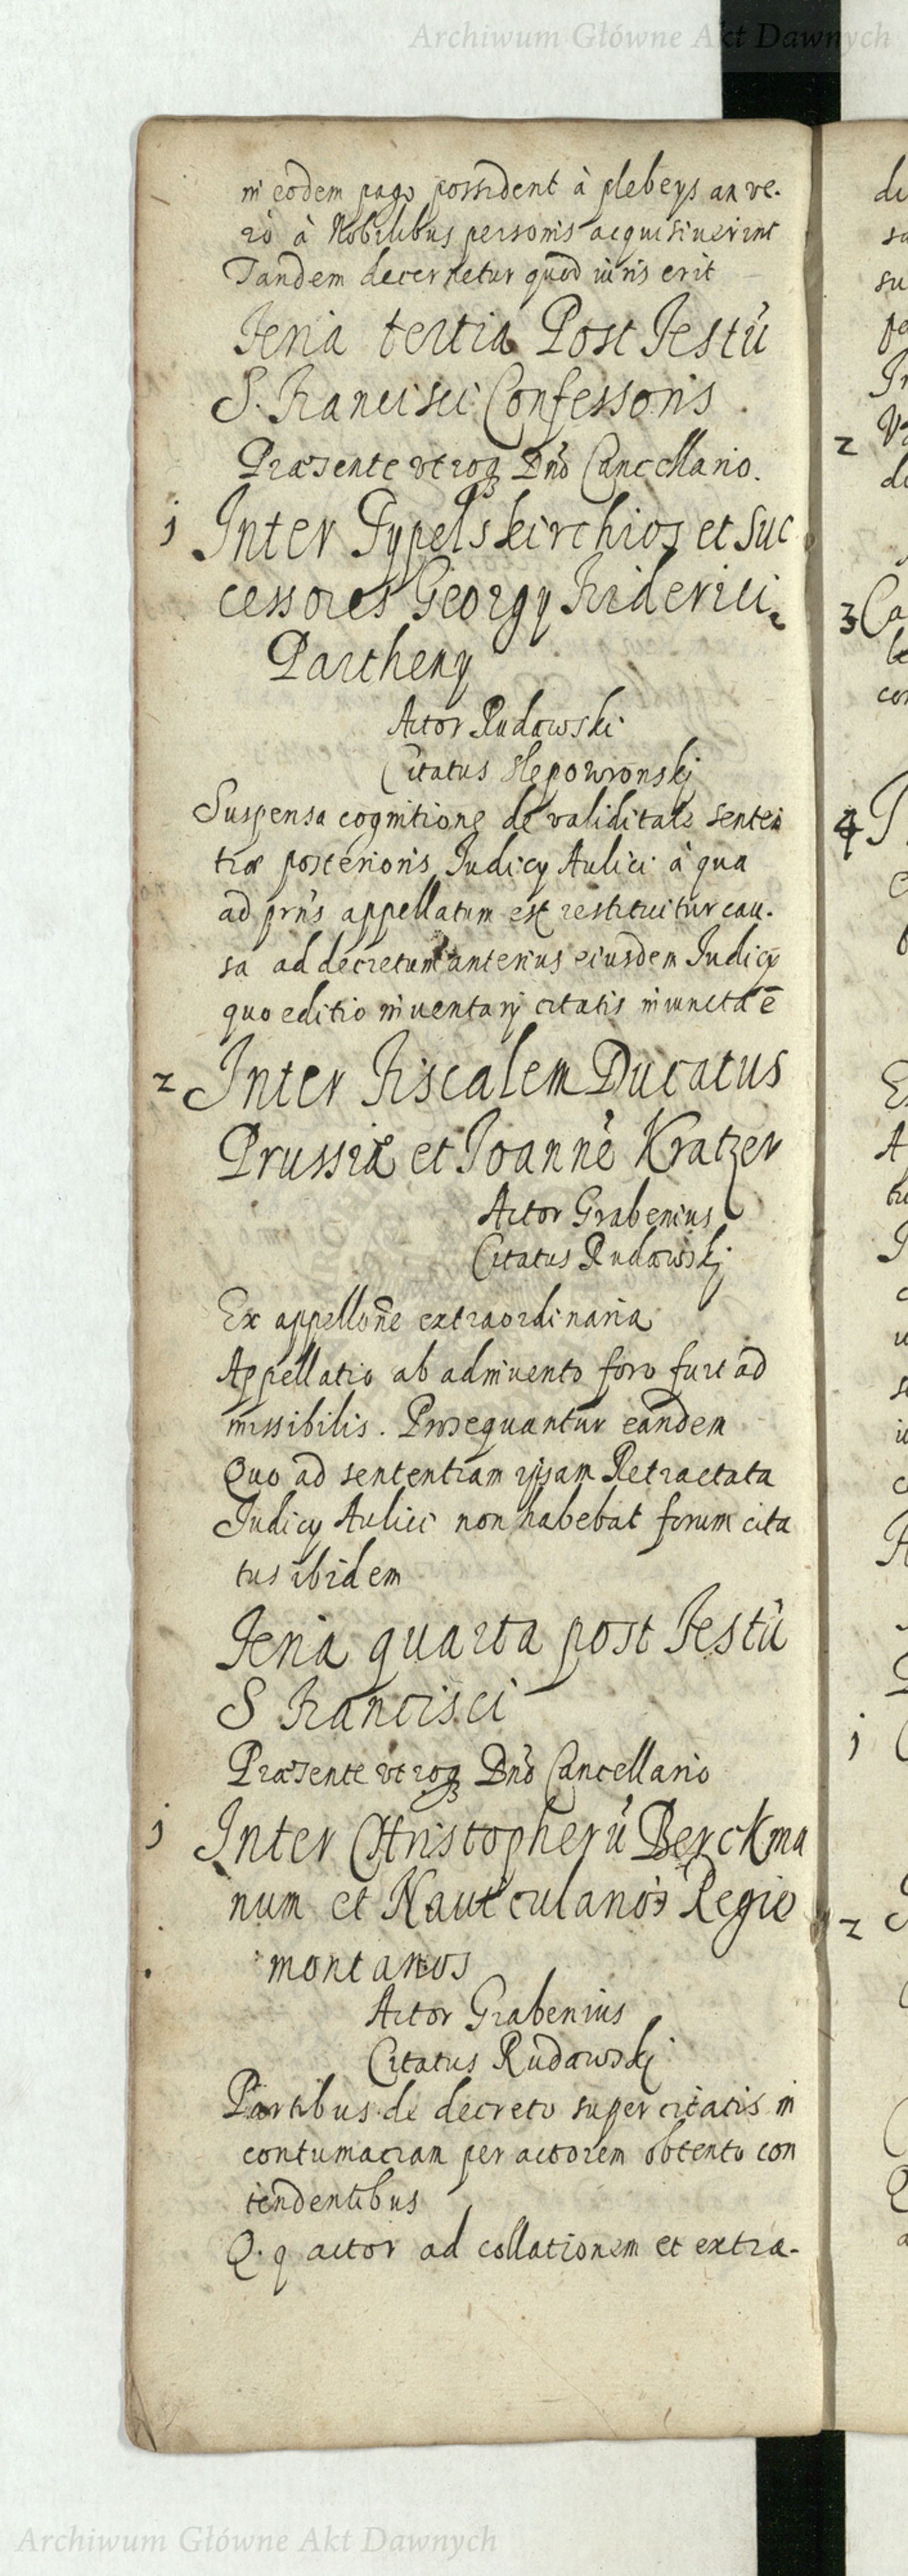 Archiwum Główne Akt Dawnych
in eodem pago possident à plebeys an ve-
rò à Nobilibus personis acquisiuerint
Tandem decernetur quod iuris erit
Feria tertia Post Festũ
S. Francisci Confessoris
Præsente vtroq Dño Cancellario.
j Inter Pypelskirchios et Suc
cessores Georgy Friderici
Partheny
Actor Rudowski
Citatus Slepowronskj
Suspensa cognitione de validitate senten
tiæ posterioris Iudicy Aulici à qua
ad prñs appellatum est restituitur cau-
sa ad decretum anterius eiusdem Iudicy
quo editio inuentarij citatis iniuncta ē
2 Inter Fiscalem Ducatus
Prussiæ et Joannẽ Kratzer
Actor Grabenius
Citatus Rudowskj
Ex appellõne extraordinaria
Appellatio ab adinuento foro fuit ad
missibilis. Prosequantur eandem
Quo ad sententiam ipsam Retractata
Iudicy Aulici non habebat forum cita
tus ibidem
Feria quarta post Festũ
S Francisci
Præsente vtroq Dño Cancellario
j Inter Christopherũ Berckma
num et Nauiculanos Regio
montanos
Actor Grabenius
Citatus Rudowskj
Partibus de decreto super citatis in
contumaciam per actorem obtento con
tendentibus
Q. q actor ad collationem et extra-
2
3
4
j
2
Archiwum Główne Akt Dawnych